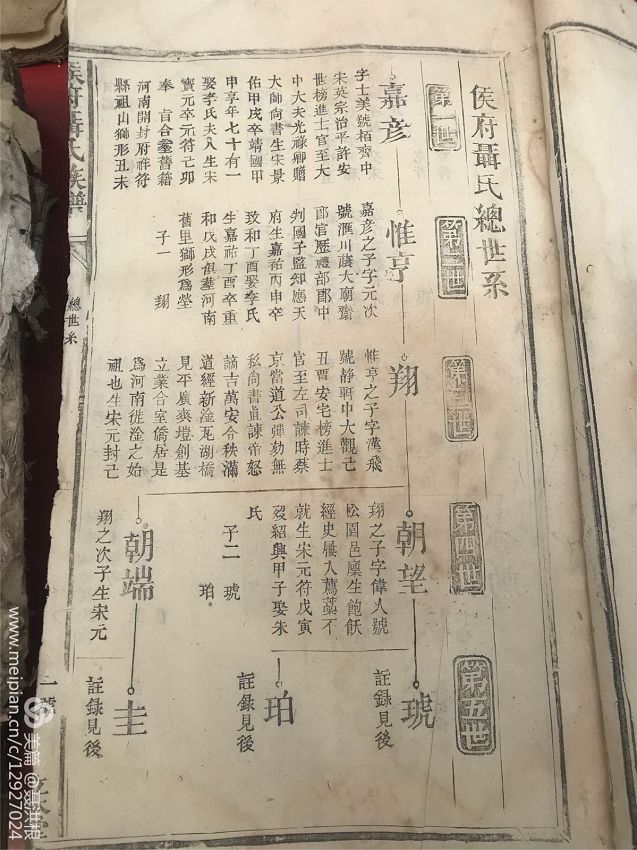 侯府聶氏總世系
第一世
嘉彦
字士美號栢齊中
宋英宗治平許安
世榜進士官至大
中大夫光祿卿贈
大師尚書生宋景
佑甲戌卒靖國甲
申享年七十有一
娶李氏夫人生宋
寶元卒元符己卯
奉旨合塟舊籍
河南開封府祥符
縣祖山獅形丑未
第二世
惟亨
嘉彦之子字元次
號滙川蔭大廟齋
郎官歷禮部郎中
判國子監知應天
府生嘉祐丙申卒
政和丁酉娶李氏
生嘉祐丁酉卒重
和戊戌俱塟河南
舊里獅形爲塋
子一 翔
第三世
翔
惟亨之子字漢飛
號静軒中大觀己
丑賈安宅榜進士
官至左司諫時蔡
京當道公彈劾無
私尚書眞諫帝怒
謫吉萬安令秩滿
道經新淦瓦湖橋
見平廣爽塏創基
立業合室僑居是
爲河南徙淦之始
祖也生宋元封己
第四世
朝望
翔之子字偉人號
松園邑廩生飽飫
經史屢入薦藁不
就生宋元符戊寅
歿紹興甲子娶朱
氏
子二 琥
珀
朝端
翔之次子生宋元
第五世
琥
註錄見後
珀
註錄見後
圭
註錄見後
侯府聶氏族譜
總世系
一號
www.meipian.cn/c/12927024
美篇